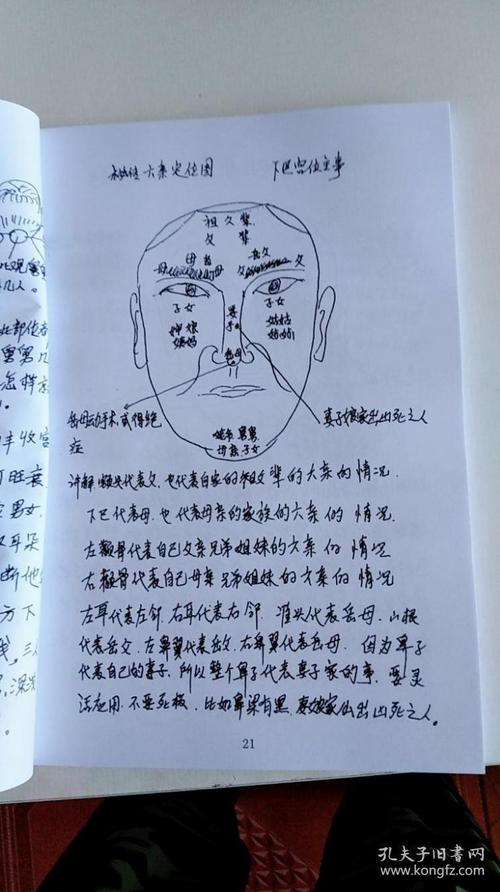 六亲定位图
下巴宫位主事
祖父辈
父辈
母
岳父
父
子女
妻子
子女
姑姑
岳母
岳母动手术或得绝症
妻子娘家出凶死之人
舅舅
母亲子女
讲解 额头代表父、也代表自家的祖父辈的六亲的情况.
下巴代表母、也代表母亲的家族的六亲的情况.
左颧骨代表自己父亲兄弟姐妹的六亲的情况
右颧骨代表自己母亲兄弟姐妹的六亲的情况
左耳代表左邻、右耳代表右邻 准头代表岳母、山根
代表岳父、左鼻翼代表岳父、右鼻翼代表岳母. 因为鼻子
代表自己的妻子、所以整个鼻子代表妻子家的事. 要灵
活应用、不要死板、比如鼻梁有黑、妻娘家出凶死之人。
21
丰收宫
旺衰
男女
耳朵
断他
方下
三人
孔夫子旧书网
www.kongfz.com